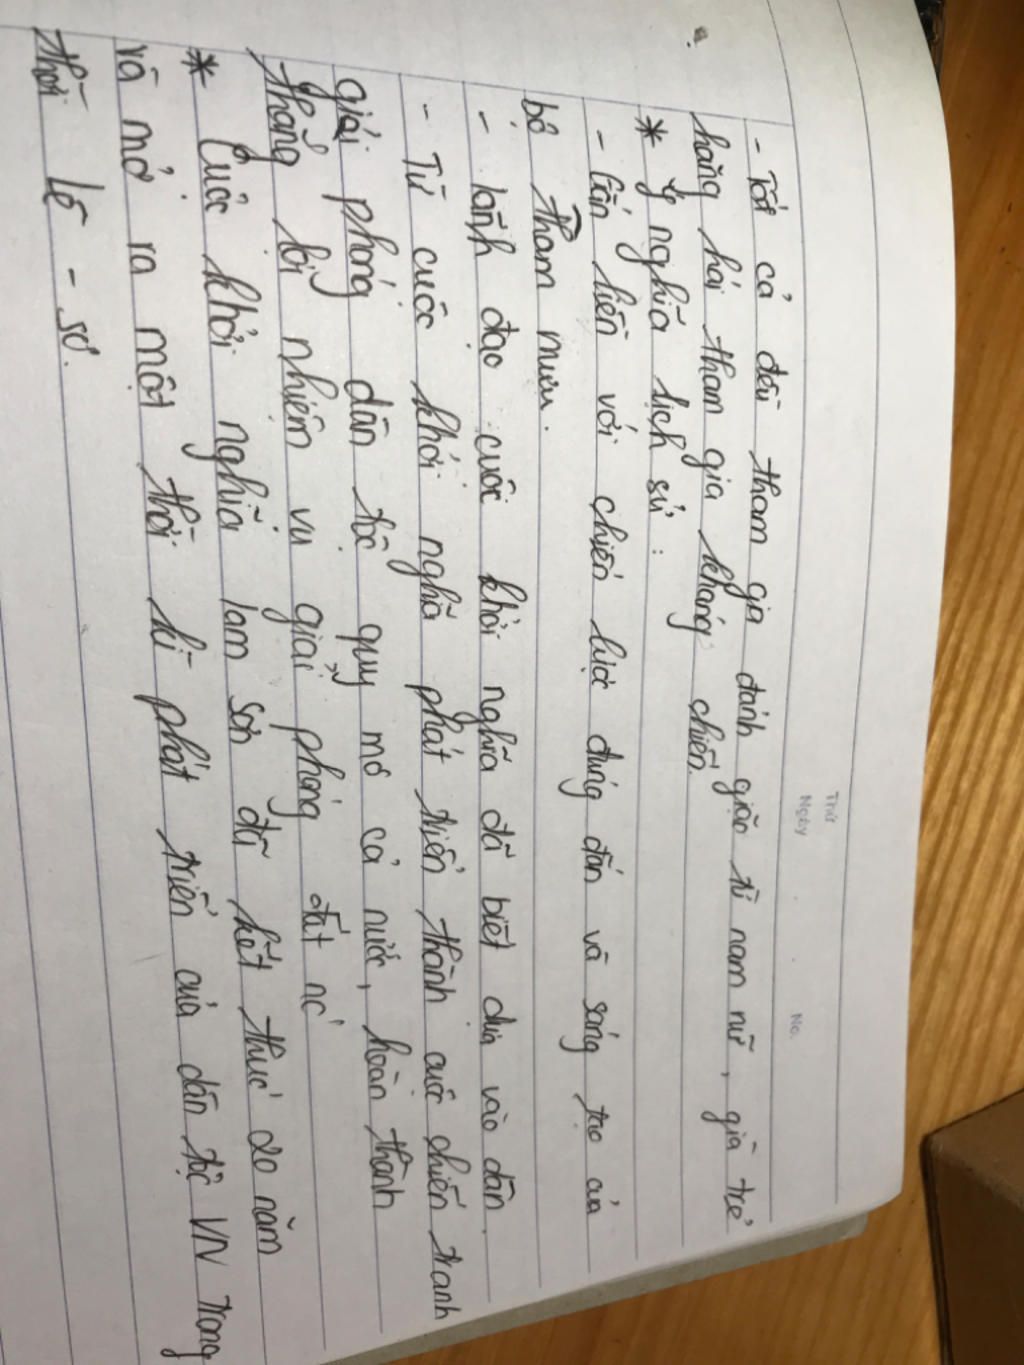 Thứ
Ngày
No.
- Tất cả đều tham gia đánh giặc từ nam nữ, già trẻ
hăng hái tham gia kháng chiến.
* Ý nghĩa lịch sử:
- Gắn liền với chiến lược đúng đắn và sáng tạo của
bộ tham mưu.
- lãnh đạo cuộc khởi nghĩa đã biết dựa vào dân.
- Từ cuộc khởi nghĩa phát triển thành cuộc chiến tranh
giải phóng dân tộc quy mô cả nước, hoàn thành
thắng lợi nhiệm vụ giải phóng đất nc
* Cuộc khởi nghĩa lam sơn đã kết thúc 20 năm
và mở ra một thời kì phát triển của dân tộc VN trong
thời lê - sơ.